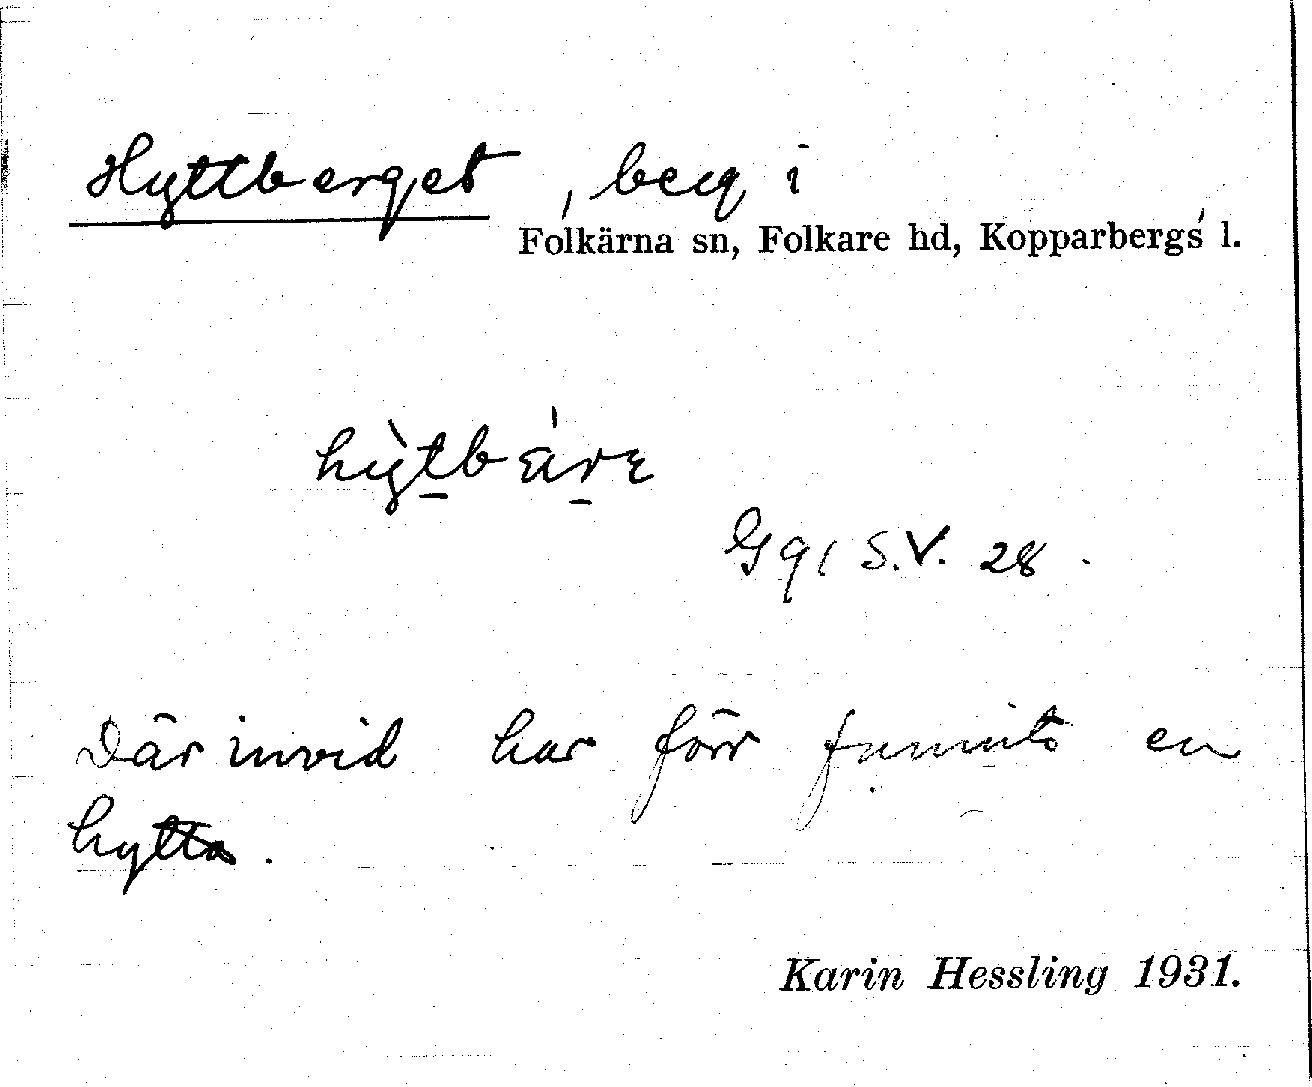 Hyttberget, berg i
Folkärna sn, Folkare hd, Kopparbergs l.
hỳtbáre
Gql S.V. 28.
Där invid har förr funnits en
hytta.
Karin Hessling 1931.